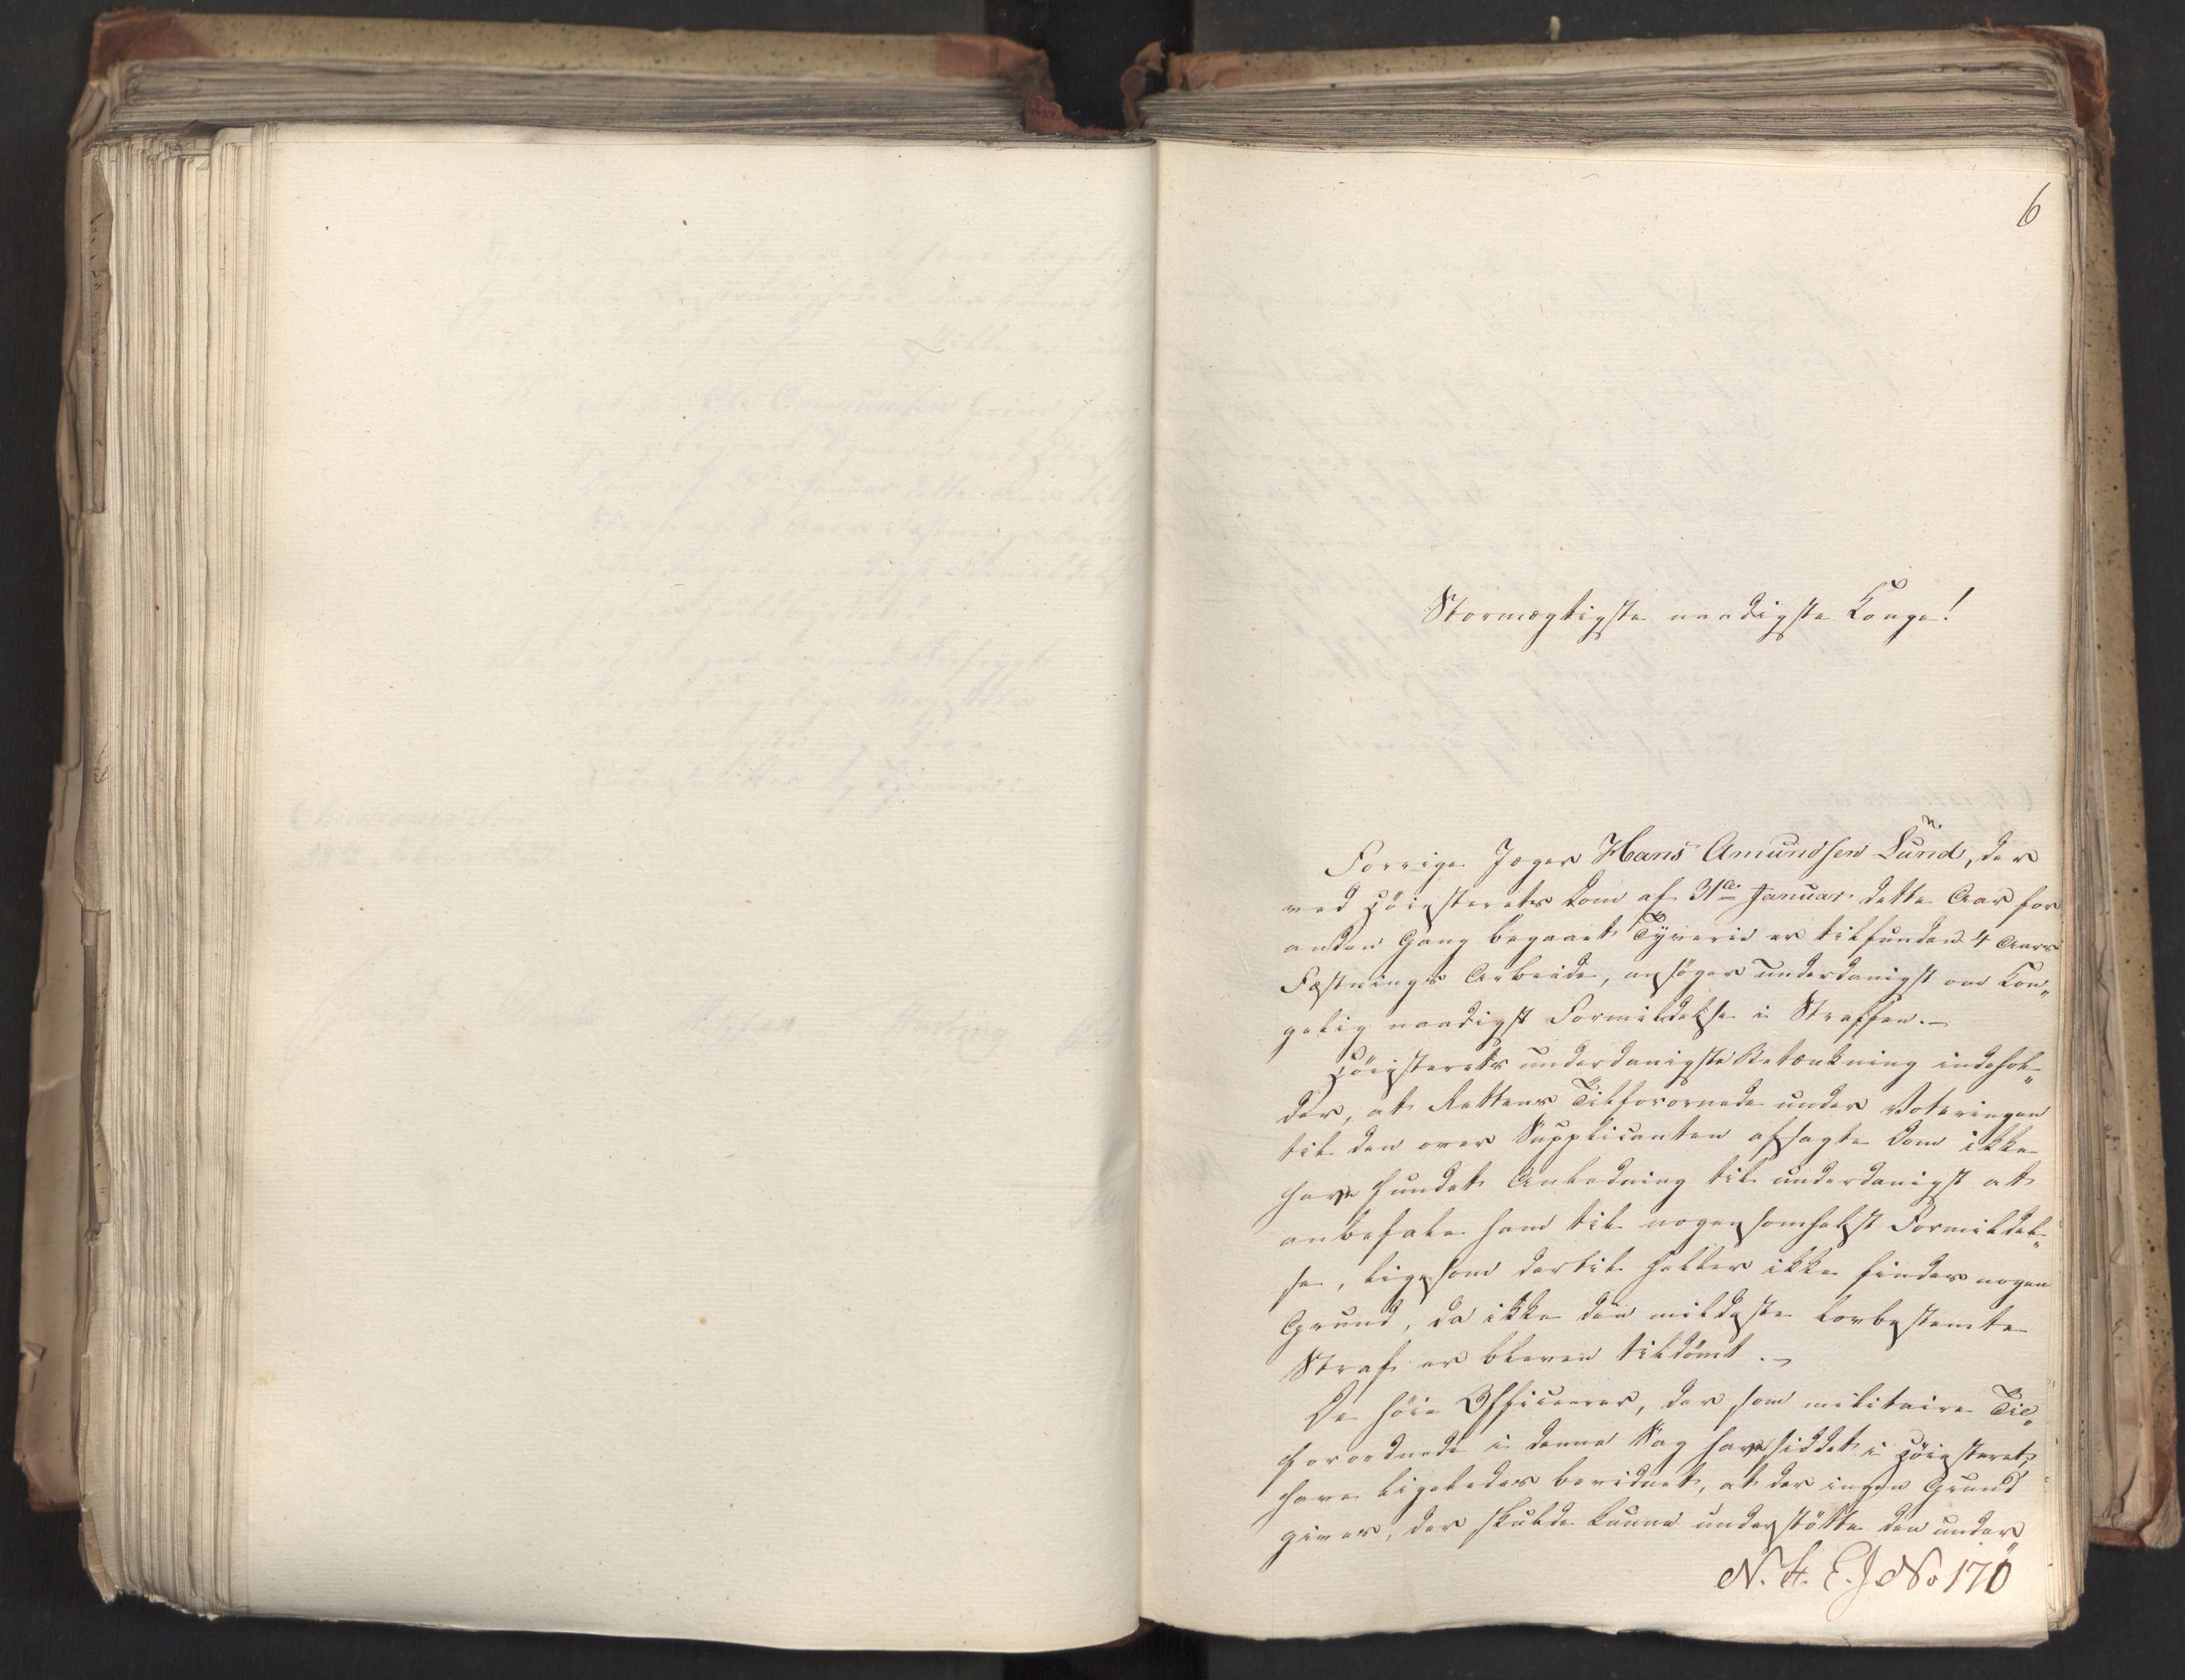 6
Stormægtigste naadigste Konge!
Forrige Jæger Hans Amundsen Lund, der
ved Høiesterets Dom af 31te Januar dette Aar for
anden Gang begaaet Tyverie er tilfunden 4 Aars
Fæstnings Arbeide, ansøger underdanigst om Kon„
gelig naadigst Formildelse i Straffen.—
Høiesterets underdanigste Betænkning indehol„
der, at Rettens Tilforornede under Voteringen
til den over Supplicanten afsagte Dom ikke
have fundet Anledning til underdanigst at
anbefale ham til nogensomhelst Formildel„
se, ligesom dertil heller ikke findes nogen
Grund, da ikke den mildeste lovbestemte
Straf er bleven tildømt.—
De høie Officerer, der som militaire Til„
forordnede i denne Sag have siddet i Høiesteret,
have ligeledes bevidnet, at der ingen Grund
gives, der skulde kunne understøtte den under„
N. H. E. J No 170